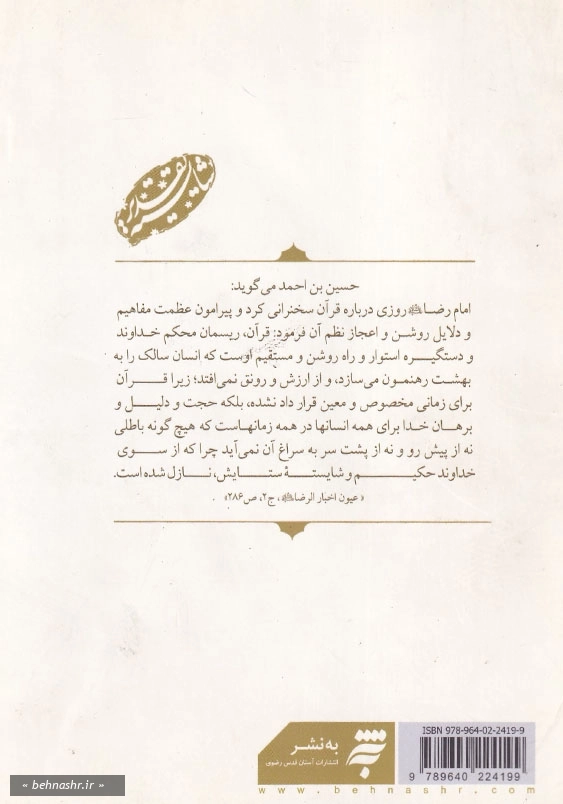 شایسته تقدیر
حسین بن احمد می‌گوید:
امام رضا روزی درباره قرآن سخنرانی کرد و پیرامون عظمت مفاهیم
و دلایل روشن و اعجاز نظم آن فرمود: قرآن، ریسمان محکم خداوند
و دستگیره استوار و راه روشن و مستقیم اوست که انسان سالک را به
بهشت رهنمون می‌سازد، و از ارزش و رونق نمی‌افتد؛ زیرا قرآن
برای زمانی مخصوص و معین قرار داد نشده، بلکه حجت و دلیل و
برهان خدا برای همه انسانها در همه زمانهاست که هیچ گونه باطلی
نه از پیش رو و نه از پشت سر به سراغ آن نمی‌آید چرا که از سوی
خداوند حکیم و شایستهٔ ستایش، نازل شده است.
«عیون اخبار الرضا، ج۲، ص۲۸۶»
به‌نشر
انتشارات آستان قدس رضوی
ISBN 978-964-02-2419-9
9 789640 224199
www.behnashr.com
« behnashr.ir »